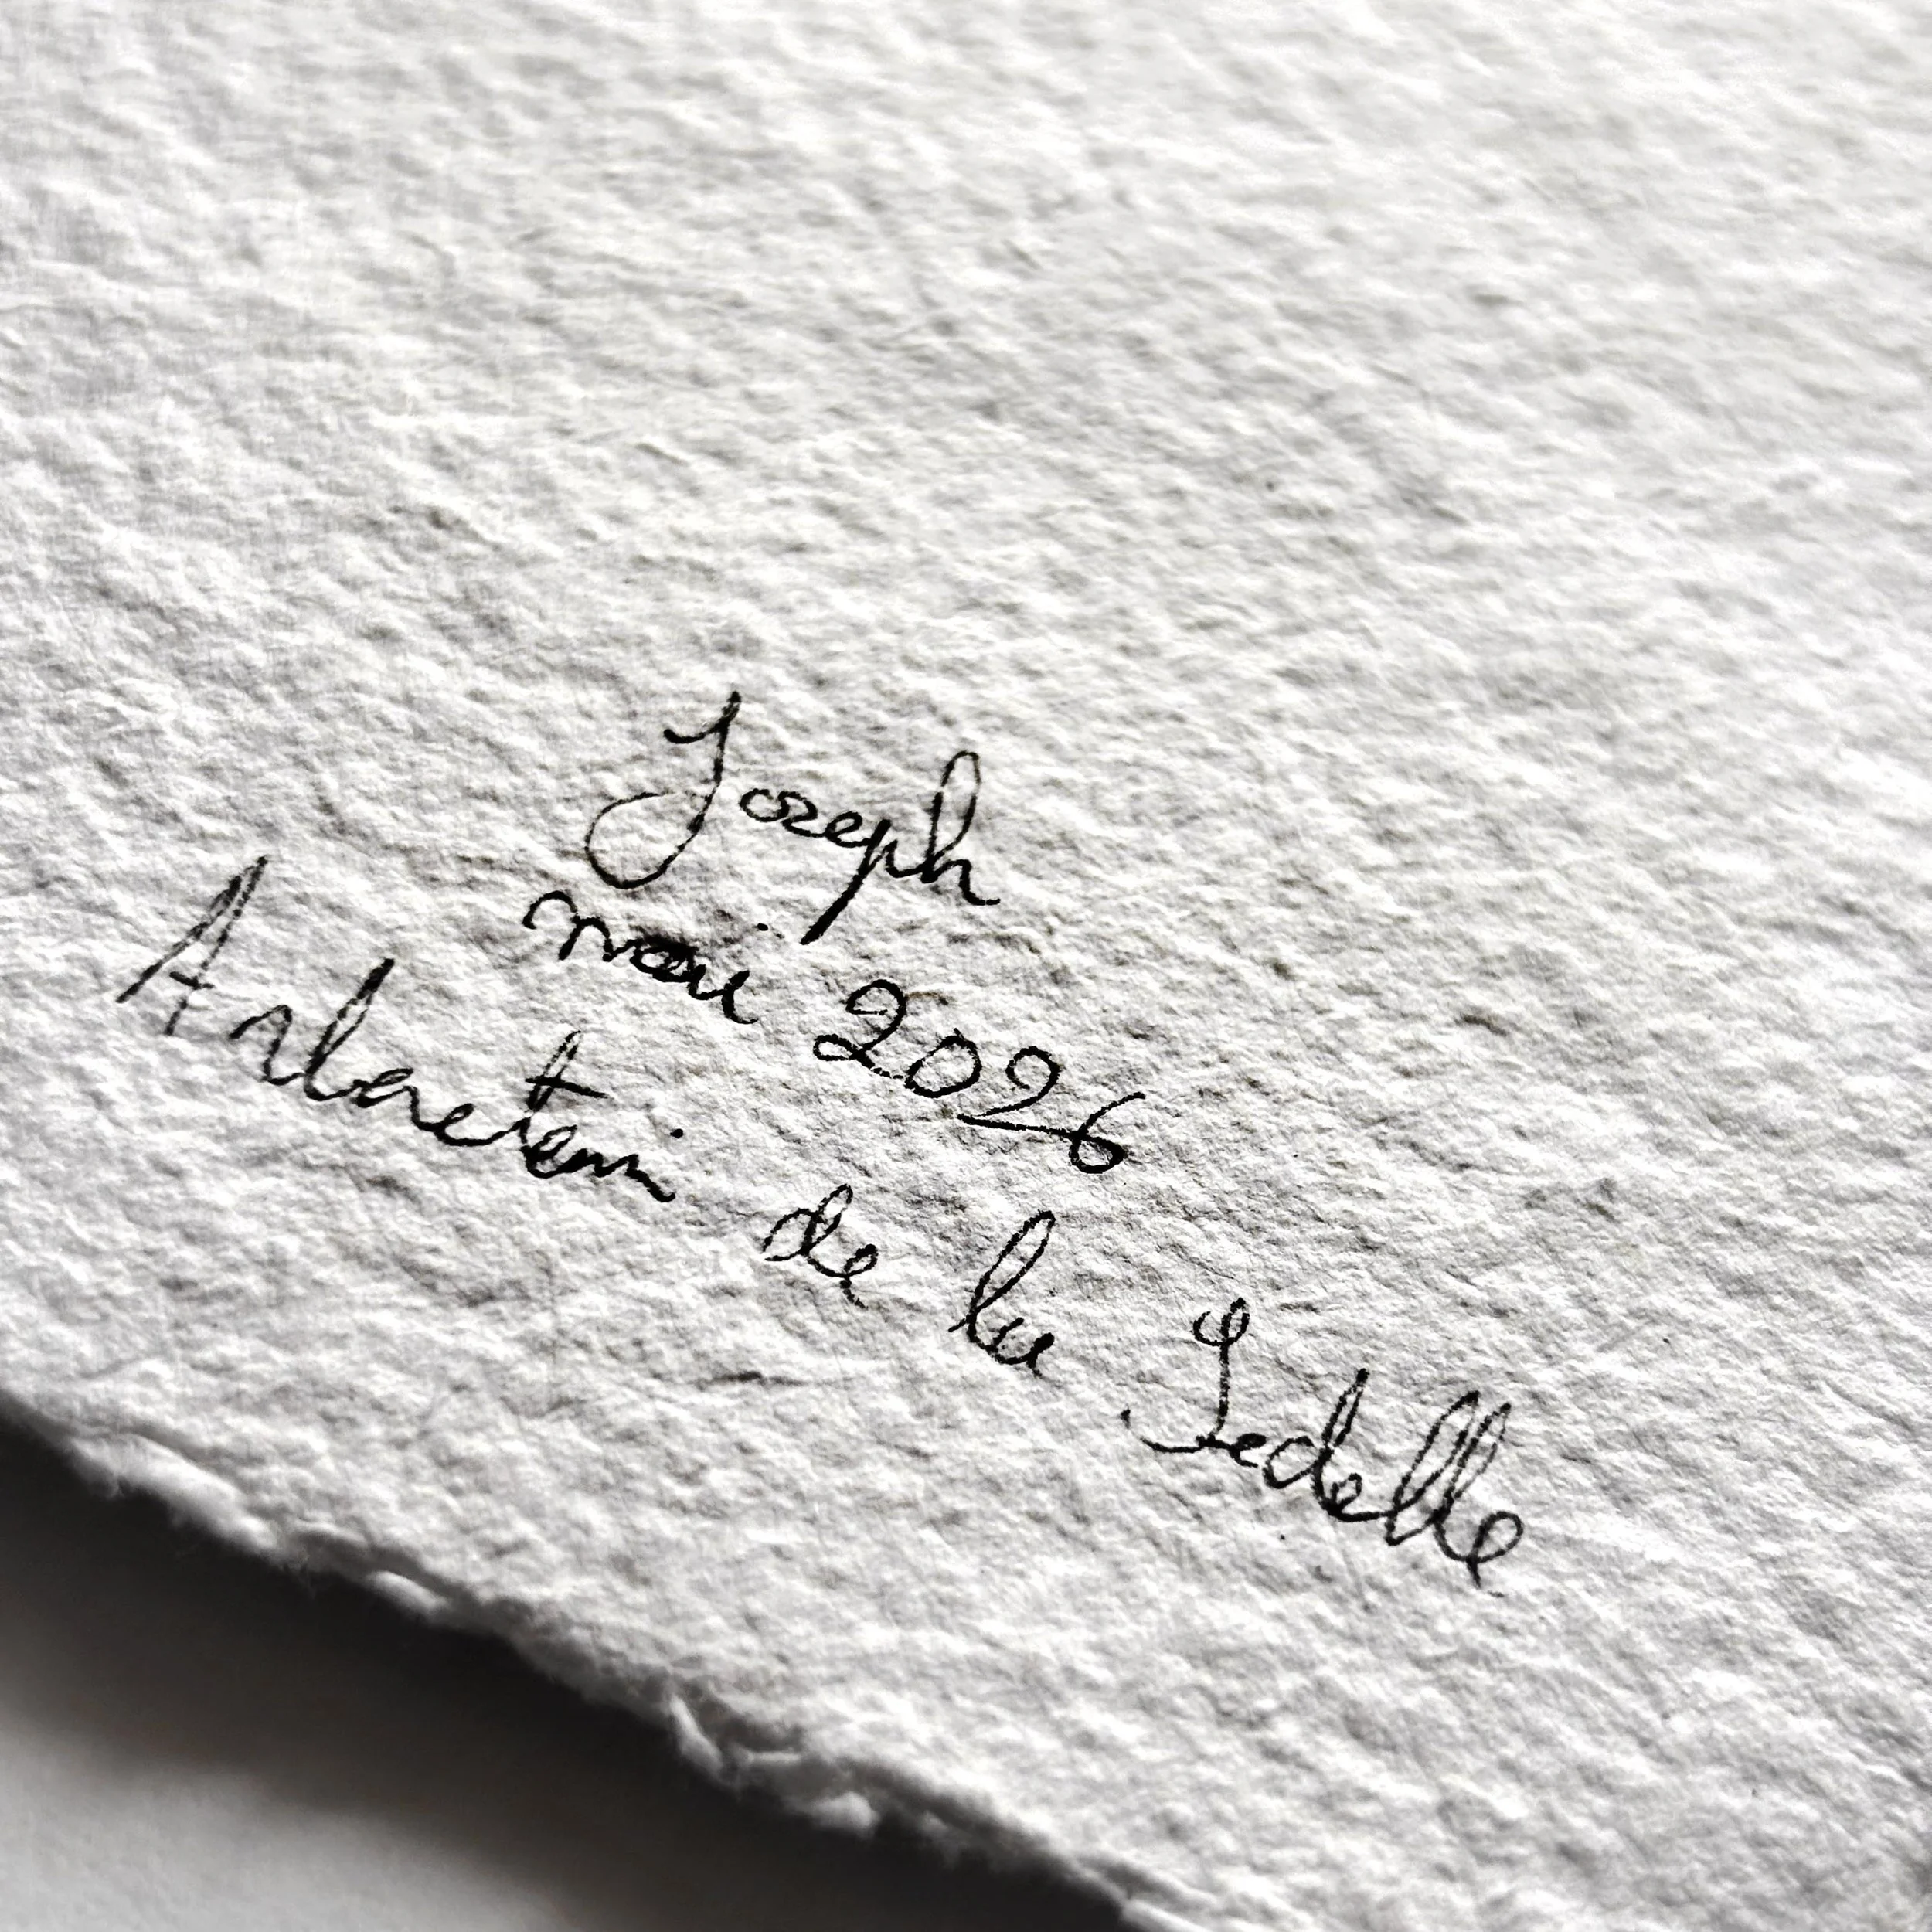 Joseph
mai 2026
Arboretum de la Sédelle